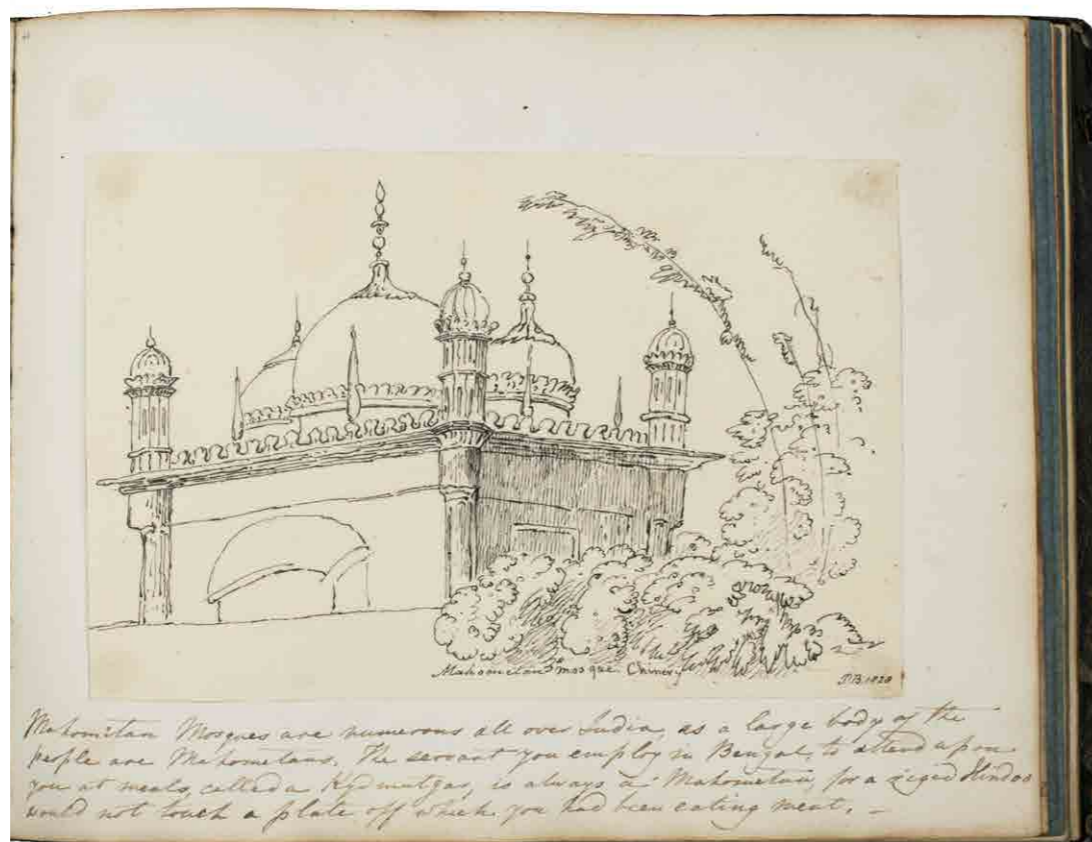 Mahometan mosque Chinery
P.B. 1828
Mahomitan Mosques are numerous all over India, as a large body of the
people are Mahometans. The servant you employ in Bengal, to attend upon
you at meals, called a Kydmutgar, is always a Mahometan, for a Hindoo
would not touch a plate off which you had been eating meat. –